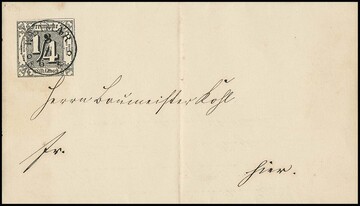 1/4
Herrn Baumeister Kohl
Fr.
hier.